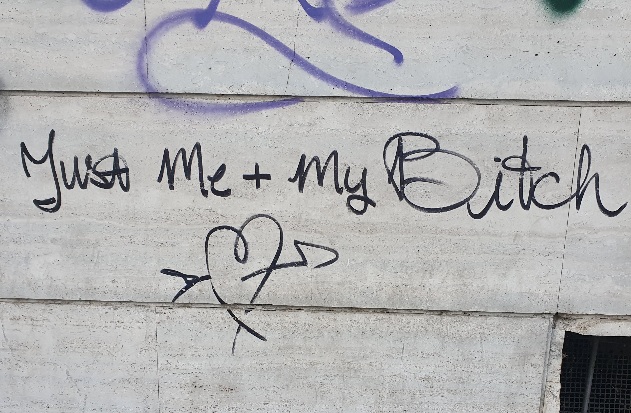 Just Me + My Bitch